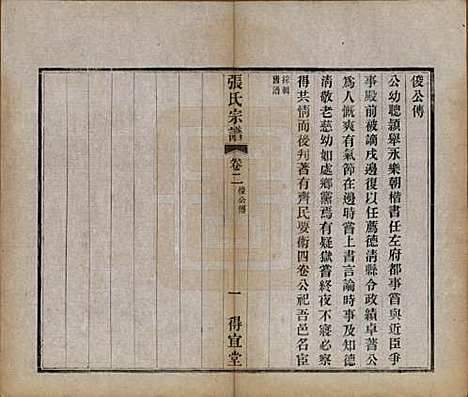 俊公傳
公幼聰頴舉永樂朝楷書任左府都事嘗與近臣爭
事殿前被謫戌邊復以任薦德清縣令政績卓著公
為人慨爽有氣節在邊時嘗上書言論時事及知德
清敬老慈幼如處鄉黨焉有疑獄嘗終夜不寢必察
得其情而後判著有齊民要術四卷公祀吾邑名臣
採輯
舊譜
張氏宗譜
卷二
俊公傳
一
得宜堂